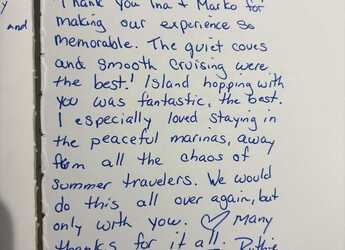 y
and
Thank you Ina + Marko for
making our experience so
memorable. The quiet coves
and smooth cruising were
the best! Island hopping with
you was fantastic, the best.
I especially loved staying in
the peaceful marinas, away
from all the chaos of
summer travelers. We would
do this all over again, but
only with you. ♡ Many
thanks for it all.